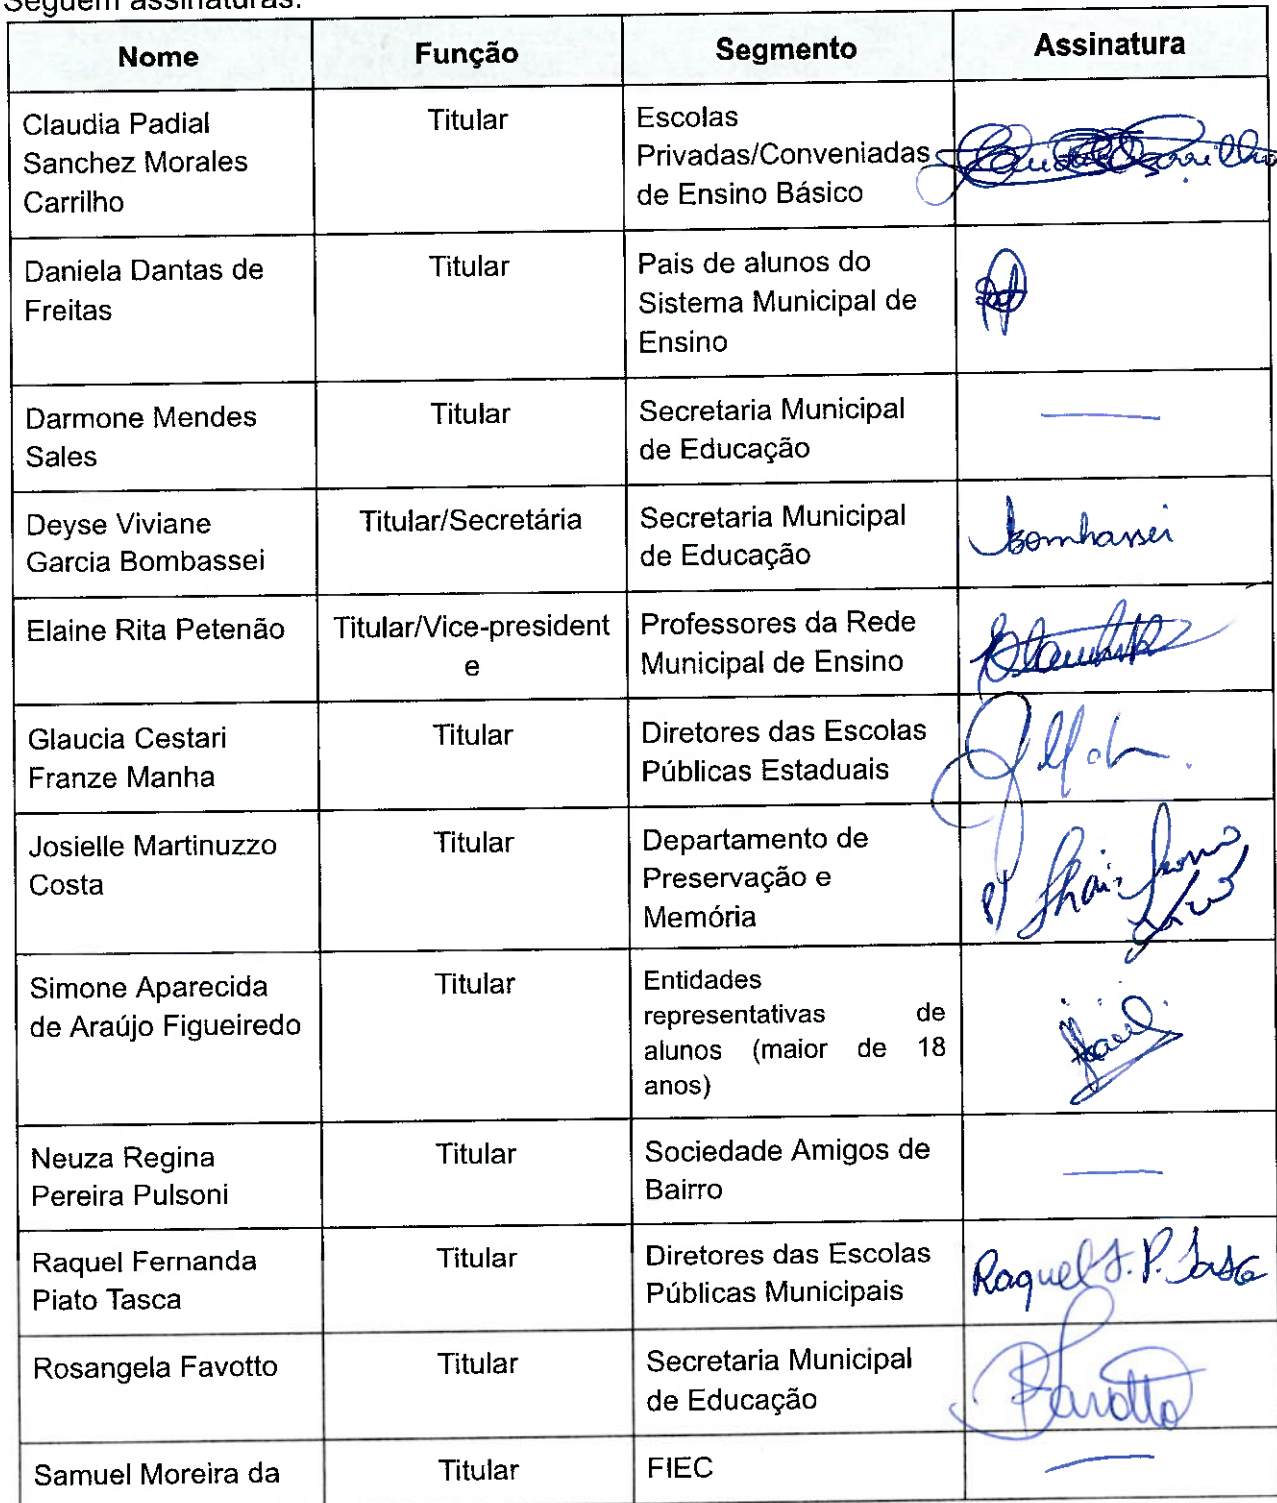 Seguem assinaturas:
Nome Função Segmento Assinatura
Claudia Padial
Sanchez Morales
Carrilho
Titular
Escolas
Privadas/Conveniadas
de Ensino Básico
Daniela Dantas de
Freitas
Titular
Pais de alunos do
Sistema Municipal de
Ensino
Darmone Mendes
Sales
Titular
Secretaria Municipal
de Educação
Deyse Viviane
Garcia Bombassei
Titular/Secretária
Secretaria Municipal
de Educação
Bombassei
Elaine Rita Petenão
Titular/Vice-president
e
Professores da Rede
Municipal de Ensino
Glaucia Cestari
Franze Manha
Titular
Diretores das Escolas
Públicas Estaduais
Josielle Martinuzzo
Costa
Titular
Departamento de
Preservação e
Memória
Simone Aparecida
de Araújo Figueiredo
Titular
Entidades
representativas de
alunos (maior de 18
anos)
Neuza Regina
Pereira Pulsoni
Titular
Sociedade Amigos de
Bairro
Raquel Fernanda
Piato Tasca
Titular
Diretores das Escolas
Públicas Municipais
Raquel F. P. Tasca
Rosangela Favotto
Titular
Secretaria Municipal
de Educação
RFavotto
Samuel Moreira da
Titular
FIEC